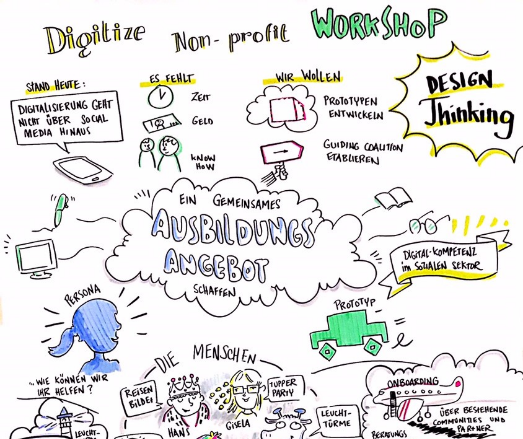 Digitize Non-profit WORKSHOP
STAND HEUTE:
DIGITALISIERUNG GEHT
NICHT ÜBER SOCIAL
MEDIA HINAUS
ES FEHLT
ZEIT
GELD
KNOW
HOW
WIR WOLLEN
PROTOTYPEN
ENTWICKELN
GUIDING COALITION
ETABLIEREN
DESIGN
Thinking
EIN GEMEINSAMES
AUSBILDUNGS
ANGEBOT
SCHAFFEN
DIGITAL-KOMPETENZ
im SOZIALEN SEKTOR
PERSONA
PROTOTYP
"WIE KÖNNEN WIR
IHR HELFEN?
LEUCHT-
DIE MENSCHEN
REISEN
BILDEN
TUPPER
PARTY
HANS
GISELA
LEUCHT-
TÜRME
ONBOARDING
BERATUNG
ÜBER BESTEHENDE
COMMUNITIES UND
PARTNER